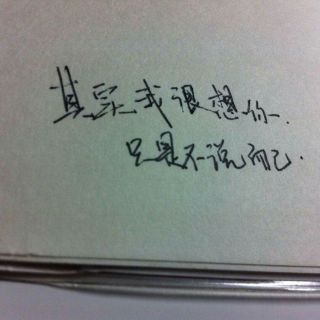 其实我很想你.
只是不说而已.